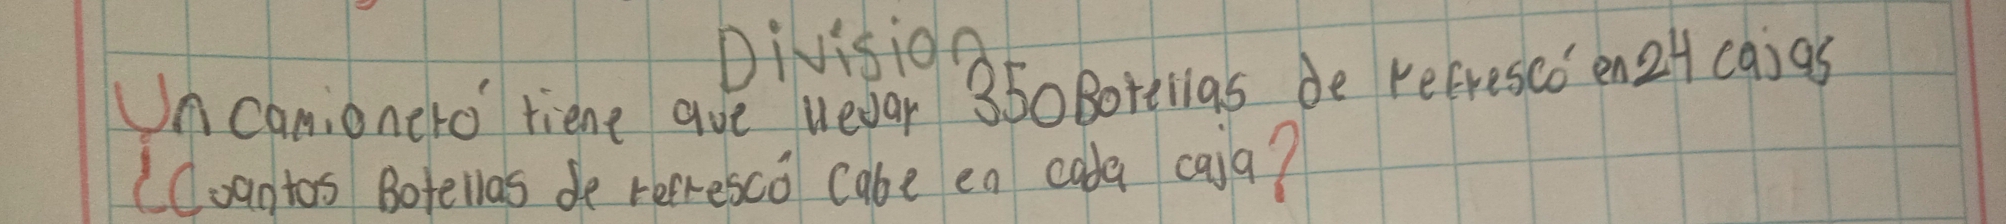 Division
Un camionero tiene que llevar 350 Botellas de refresco en 24 cajas
¿Cuantos Botellas de refresco cabe en cada caja?